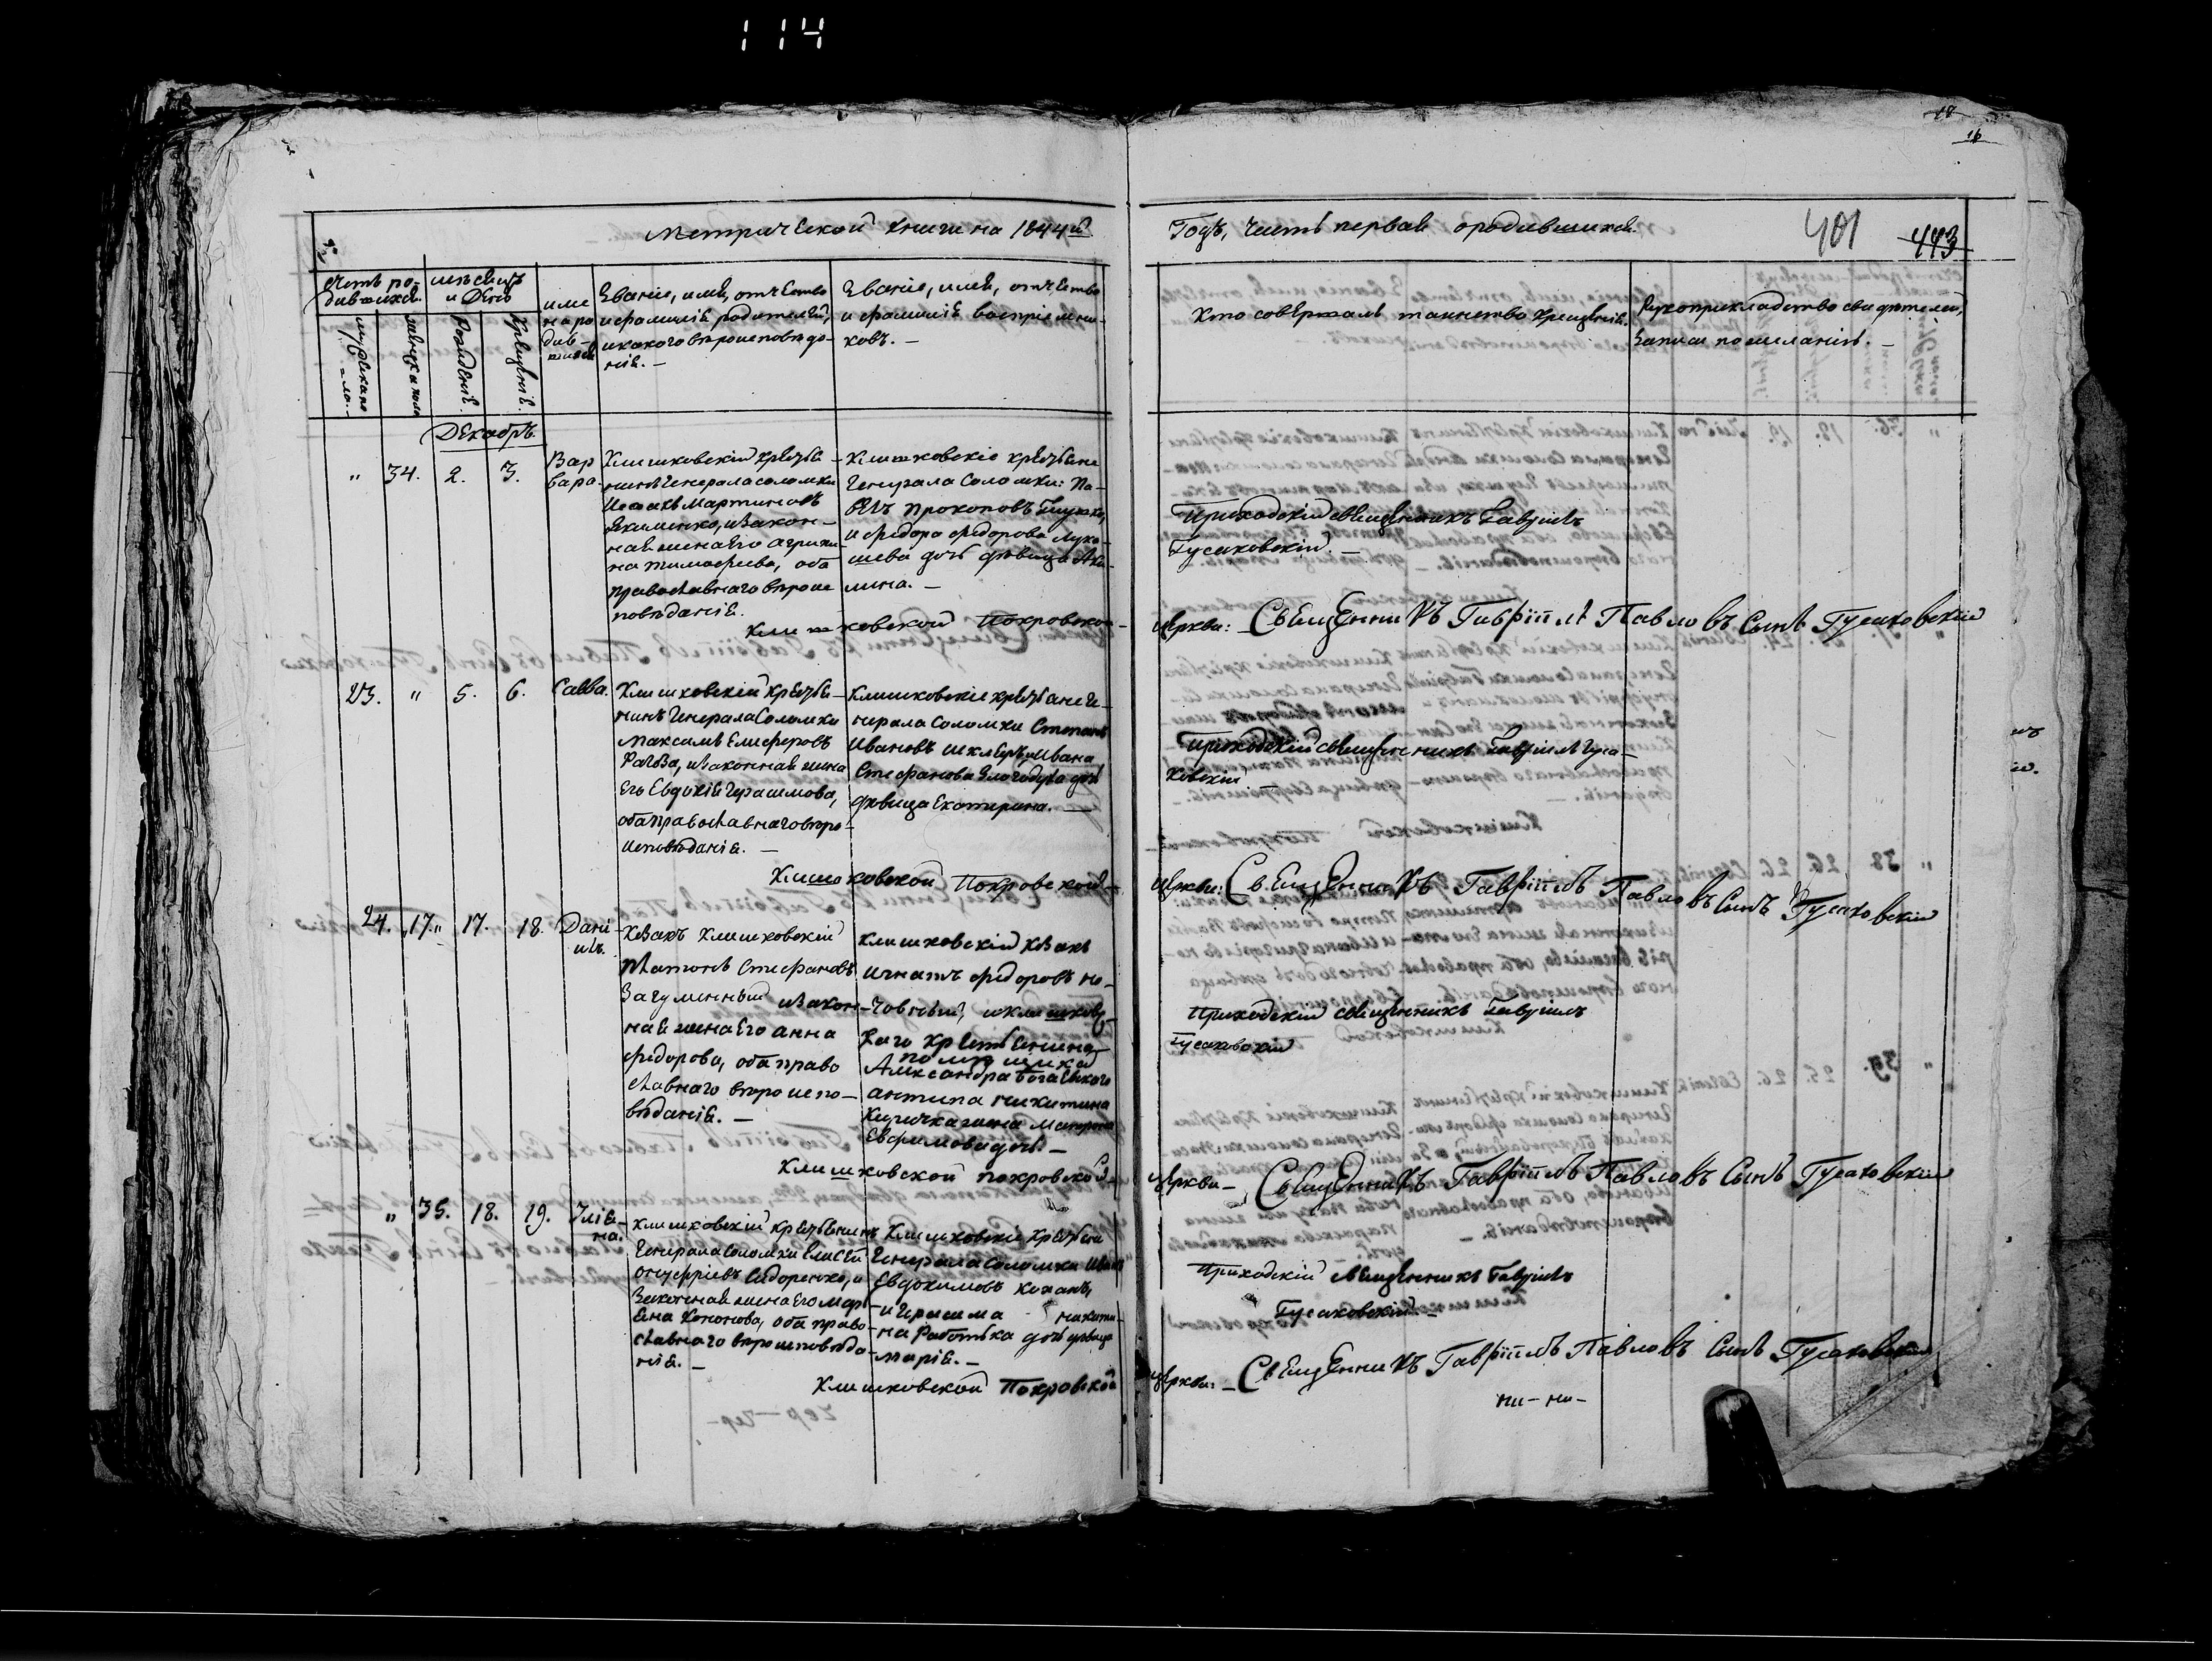 114
18
16
Метрической книги на 1844й
Годъ, часть первая о родившихся.
401
443
Счетъ ро-
дившихся.
мужеска по-
ла.
женска пола
месяцъ
и День
Рожденiе.
Крещенiе.
имя
наро
див-
шихся
Званiе, имя, отчество
и фамилiе родителей,
и какого вероисповеда-
нiя. -
Званiе, имя, отчество
и фамилiе воспрiемни-
ковъ. -
Кто совершалъ таинство крещенiя.
Рукоприкладство свидетелей,
записи по желанiю. -
Декабрь.
" 34. 2. 3.
Вар
вара.
Клишковскiй крестья-
нинъ Генерала Соломки
Мартиновъ
Якименко, и закон-
ная жена его Агрипи-
на Тимофеева, оба
православнаго вероис
поведанiя.
Клишковскiе крестьяне
Генерала Соломки: Па-
велъ Прокоповъ
и Федора Федорова Луко-
шева дочь девица Аки-
лина. -
Приходскiй священникъ Гаврiилъ
Гусаковскiй. -
Клишковской Покровской
церкви: Священникъ Гаврiилъ Павловъ Сынъ Гусаковскiй
23. " 5. 6.
Савва.
Клишковскiй крестья-
нинъ Генерала Соломки
Максимъ Елисферовъ
и законная жена
его Евдокiя Герасимова,
оба православнаго веро-
исповеданiя. -
Клишковскiе крестьяне Ге-
нерала Соломки Степанъ
Ивановъ и Ивана
Стефанова дочь
девица Екатерина. -
Приходскiй священникъ Гаврiилъ Гуса-
ковскiй
Клишковской Покровской
церкви: Священникъ Гаврiилъ Павловъ Сынъ Гусаковскiй
24. "17." 17. 18.
Данi-
илъ.
Козакъ Клишковскiй
Платонъ Стефановъ
Загуменный и закон-
ная жена его Анна
Федорова, оба право
славнаго вероиспо-
веданiя. -
Клишковскiй козакъ
Игнатъ Федоровъ Но-
човный, и клишковс-
каго крестьянина
помещика
Александра Богаевскаго
Антипа Никитина
жена Матрона
Евфимова дочь. -
Приходскiй священникъ Гаврiилъ
Гусаковскiй
Клишковской Покровской
церкви - Священникъ Гаврiилъ Павловъ Сынъ Гусаковскiй
" 35. 18. 19.
Улiя-
на.
Клишковскiй крестьянинъ
Генерала Соломки Елисей
Онуфрiевъ Сидоренко, и
законная жена его Мар-
Кононова, оба право-
славнаго вероисповеда-
нiя. -
Клишковскiе крестьяне
Генерала Соломки Иванъ
Евдокимовъ Коханъ,
и Герасима Никити-
на Работька дочь девица
Марiя. -
Приходскiй священникъ Гаврiилъ
Гусаковскiй -
Клишковской Покровской
церкви: - Священникъ Гаврiилъ Павловъ Сынъ Гусаковскiй
ни - ни -